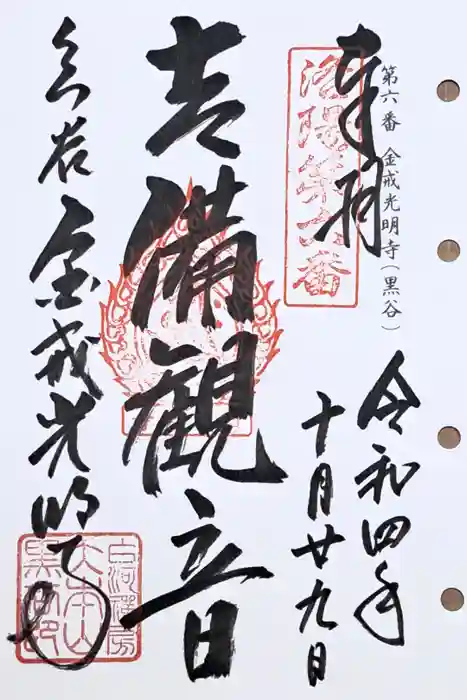 第六番 金戒光明寺（黒谷）
奉拝
洛陽第六番
令和四年
十月廿九日
吉備観音
くろ谷 金戒光明寺
白河禅房
大本山
黒谷